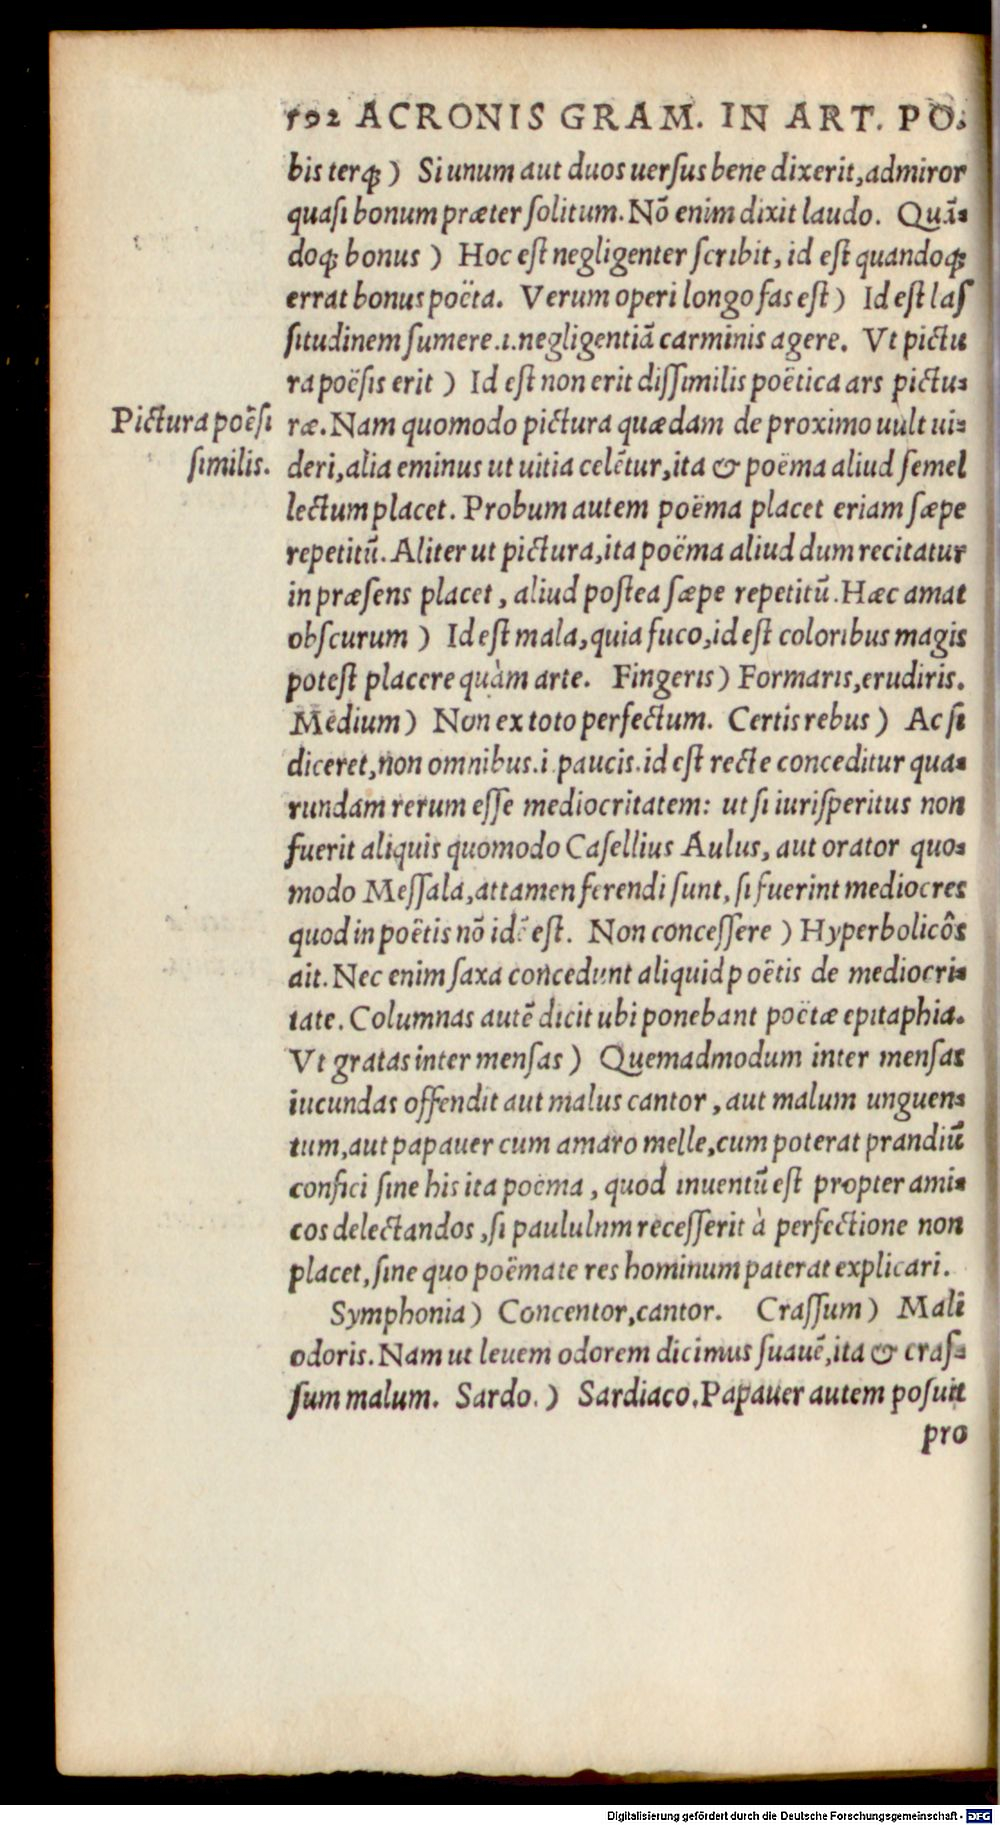 192 ACRONIS GRAM. IN ART. PO.
bis terq́;) Si unum aut duos uersus bene dixerit, admiror
quasi bonum præter solitum. Nõ enim dixit laudo. Quã-
doq́; bonus) Hoc est negligenter scribit, id est quandoq́;
errat bonus poëta. Verum operi longo fas est) Id est las
situdinem sumere .i. negligentiã carminis agere. Vt pictu
ra poësis erit) Id est non erit dissimilis poëtica ars pictu-
Pictura poësi
similis.
ræ. Nam quomodo pictura quædam de proximo uult ui-
deri, alia eminus ut uitia celẽtur, ita & poëma aliud semel
lectum placet. Probum autem poëma placet eriam sæpe
repetitũ. Aliter ut pictura, ita poëma aliud dum recitatur
in præsens placet, aliud postea sæpe repetitũ. Hæc amat
obscurum) Id est mala, quia fuco, id est coloribus magis
potest placere quàm arte. Fingeris) Formaris, erudiris.
Medium) Non ex toto perfectum. Certis rebus) Ac si
diceret, non omnibus .i. paucis. id est recte conceditur qua-
rundam rerum esse mediocritatem: ut si iurisperitus non
fuerit aliquis quomodo Casellius Aulus, aut orator quo-
modo Messala, attamen ferendi sunt, si fuerint mediocres
quod in poëtis nõ idẽ est. Non concessere) Hyperbolicôs
ait. Nec enim saxa concedunt aliquid poëtis de mediocri-
tate. Columnas autẽ dicit ubi ponebant poëtæ epitaphia.
Vt gratas inter mensas) Quemadmodum inter mensas
iucundas offendit aut malus cantor, aut malum unguen-
tum, aut papauer cum amaro melle, cum poterat prandiũ
confici sine his ita poëma, quod inuentũ est propter ami-
cos delectandos, si paululnm recesserit à perfectione non
placet, sine quo poëmate res hominum paterat explicari.
Symphonia) Concentor, cantor. Crassum) Mali
odoris. Nam ut leuem odorem dicimus suauẽ, ita & cras-
sum malum. Sardo.) Sardiaco. Papauer autem posuit
pro
Digitalisierung gefördert durch die Deutsche Forschungsgemeinschaft - DFG